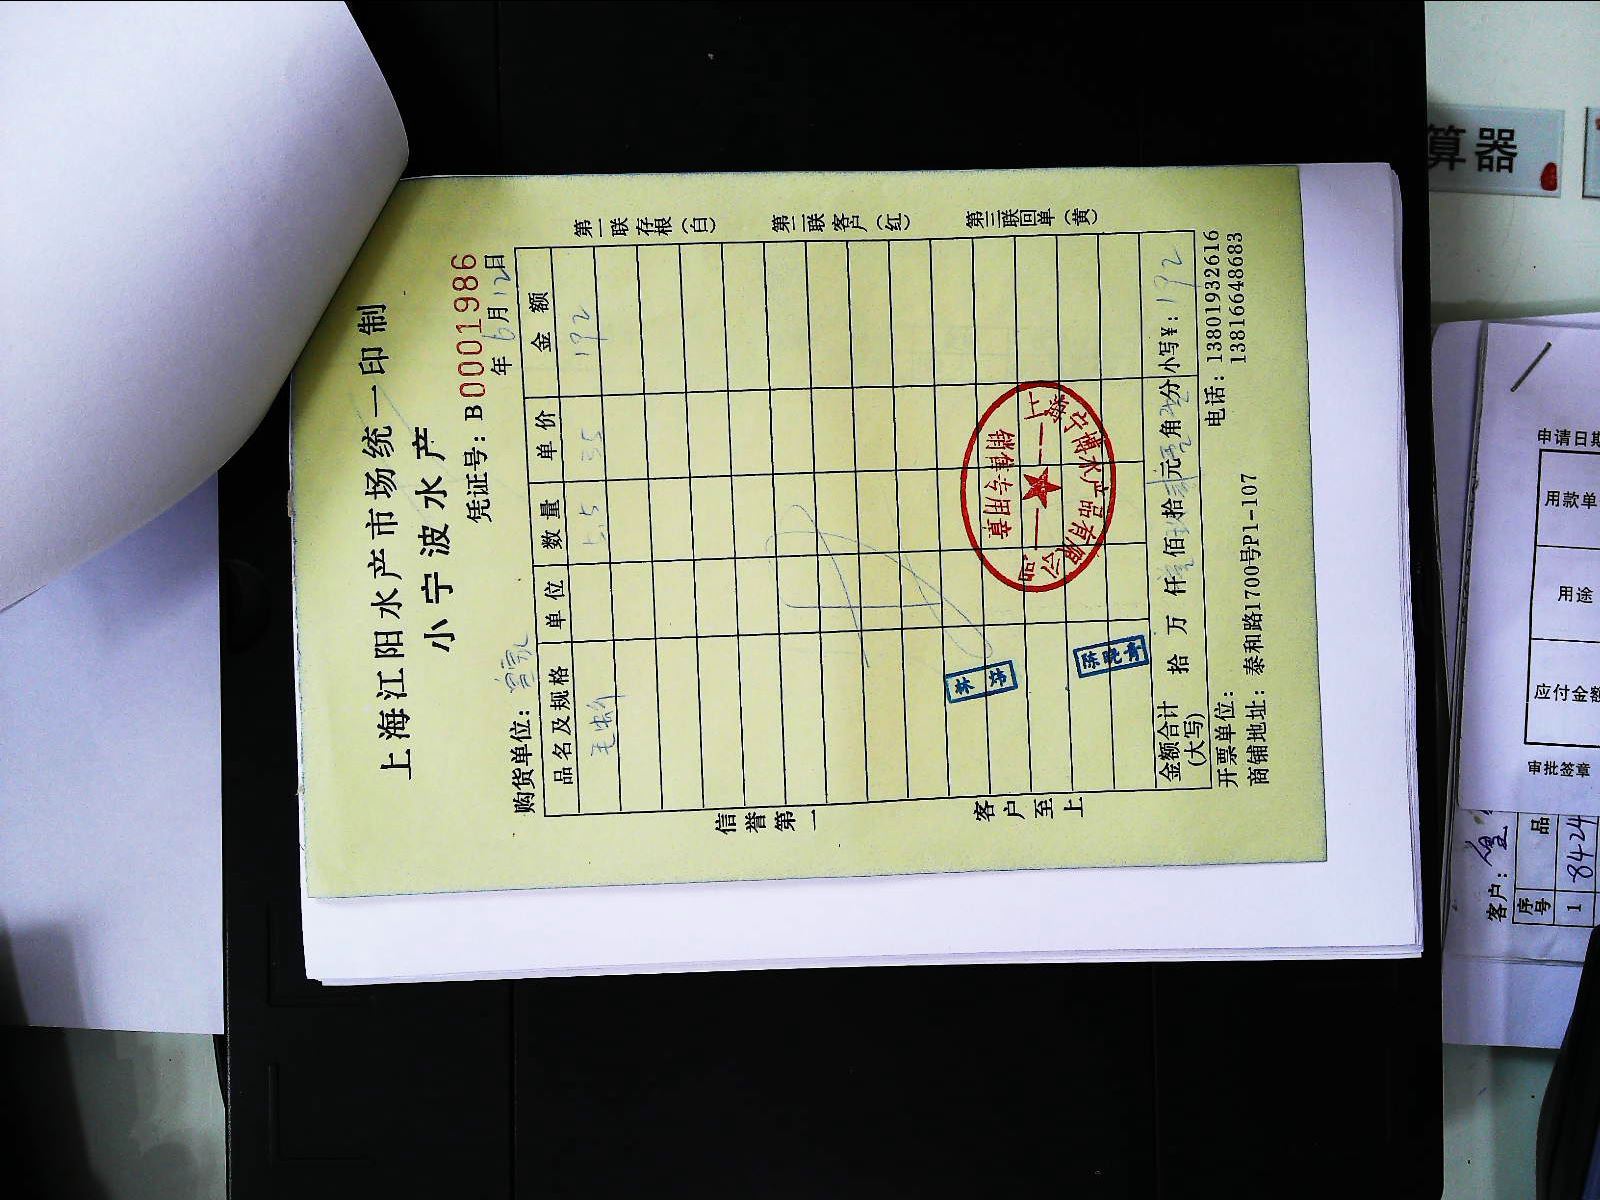 上海江阳水产市场统一印制
小宁波水产
凭证号：B0001986
购货单位：
年 6月12日
品名及规格 单位 数量 单价 金额
毛蚶 5.5 35 192
第一联存根（白）
第二联客户（红）
第三联回单（黄）
信誉第一
客户至上
上海宁波水产品有限公司
销售专用章
陈晓青
金额合计（大写） 拾 万 仟 佰 拾 元 角 分 小写¥：192
开票单位：
电话：13801932616
13816648683
商铺地址：泰和路1700号P1-107
算器
申请日期
用款单
用途
应付金额
审批签章
客户：
序号 品
1 8424